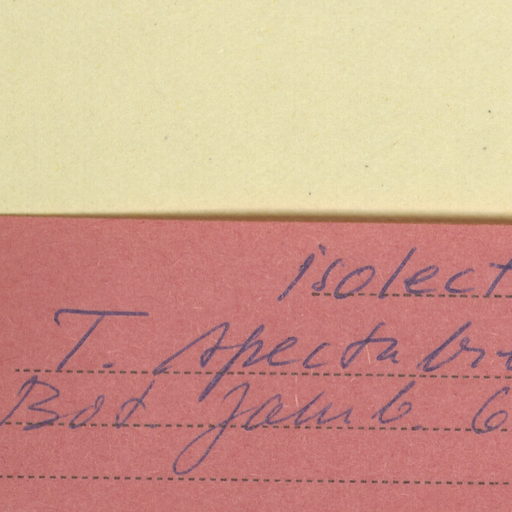 isolect
T. spectabi
Bot. Jahrb. 6